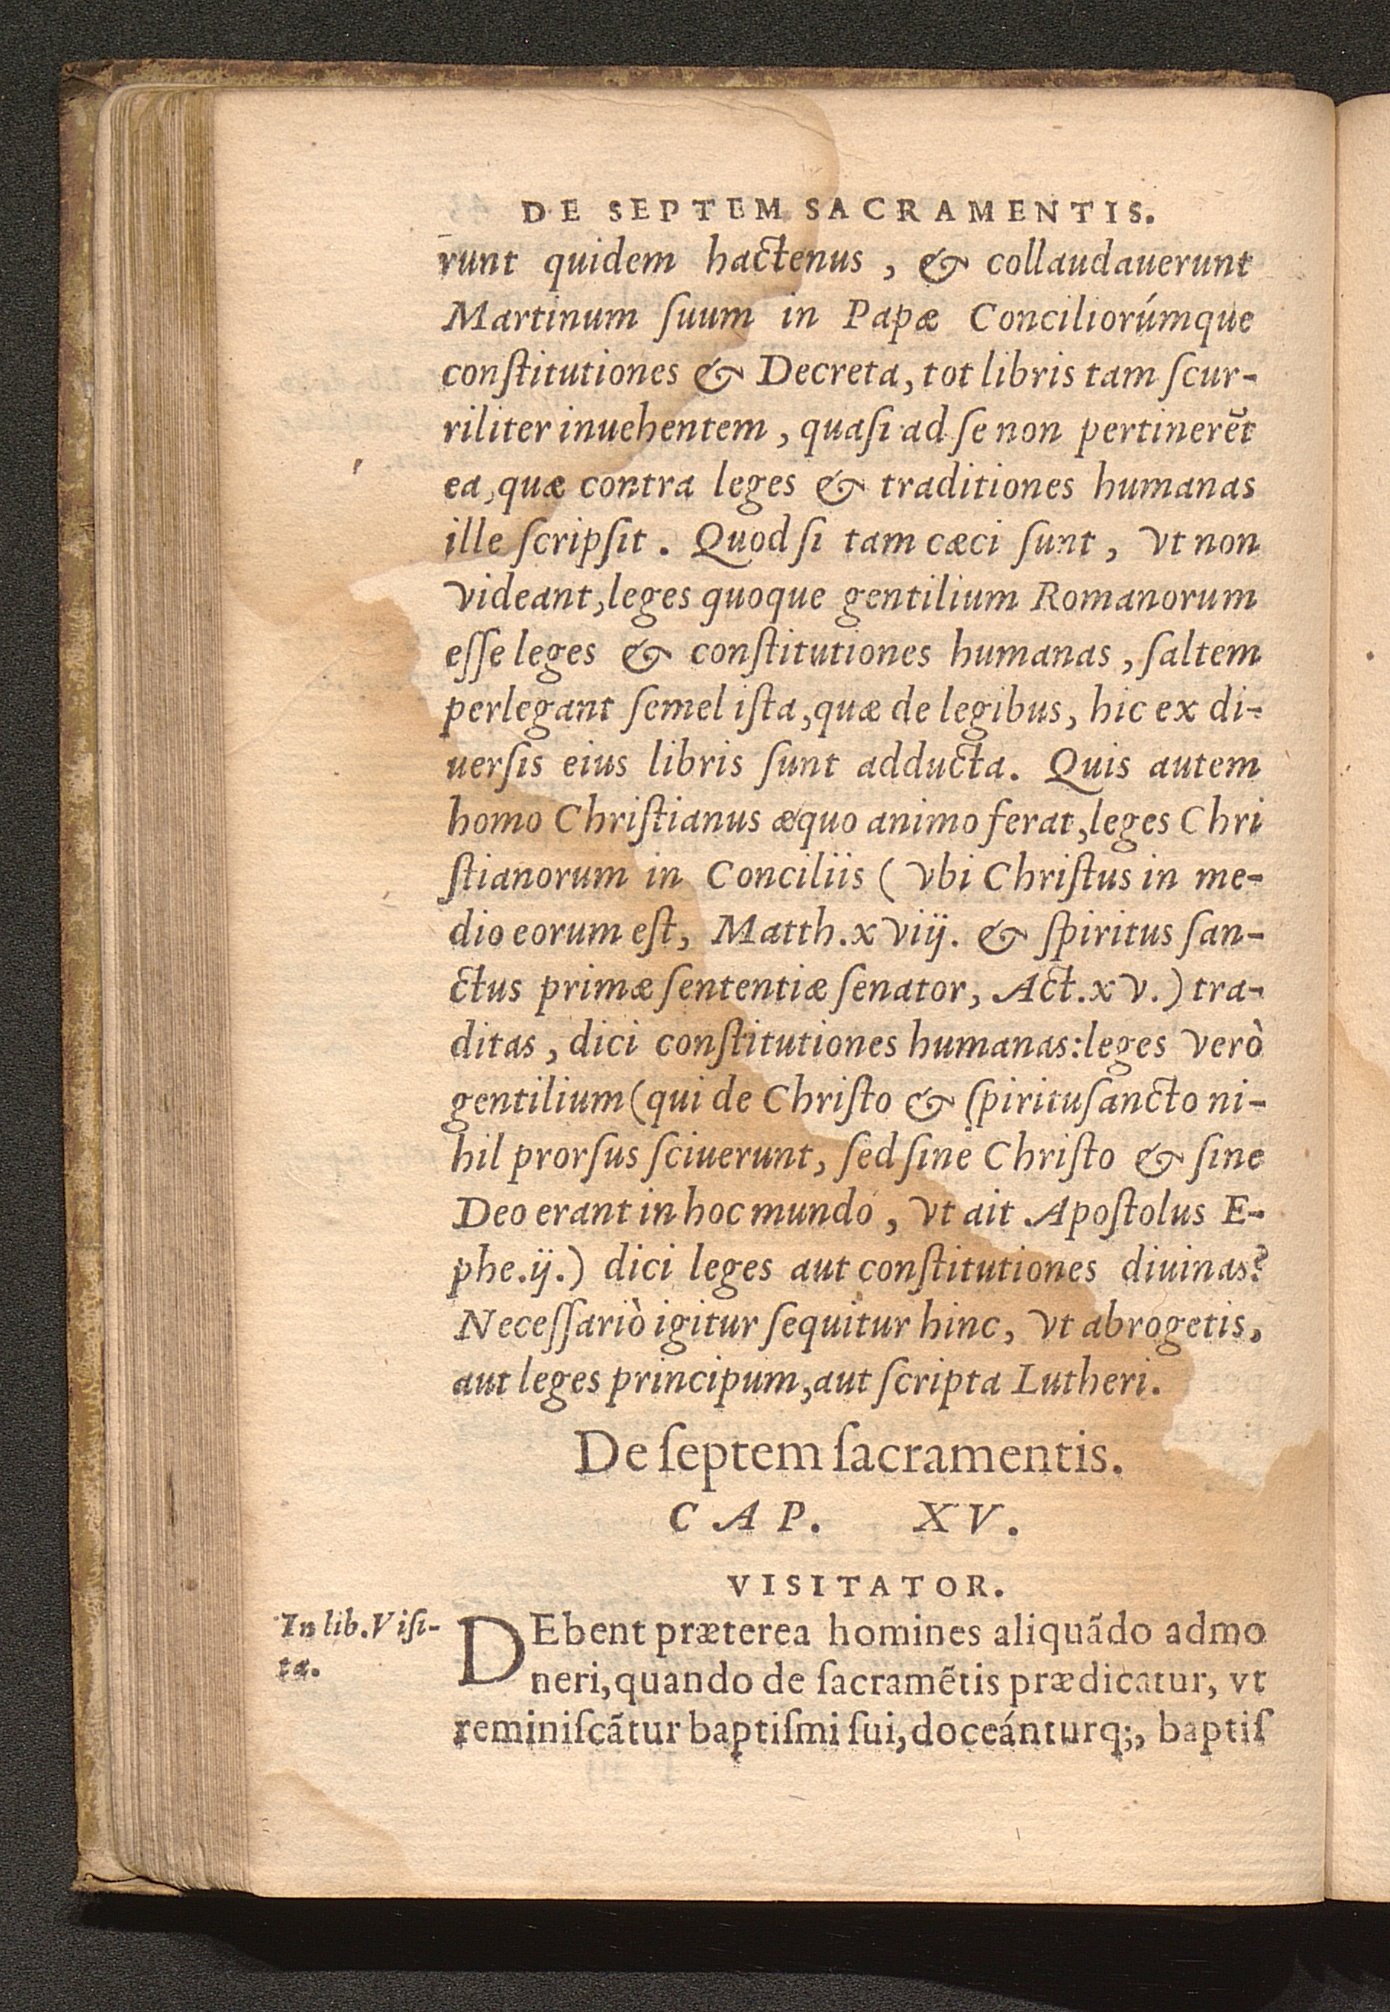 DE SEPTEM SACRAMENTIS.
runt quidem hactenus, & collaudauerunt
Martinum ſuum in Papæ Conciliorúmque
conſtitutiones & Decreta, tot libris tam ſcur-
riliter inuehentem, quaſi ad ſe non pertinerēt
ea, quæ contra leges & traditiones humanas
ille ſcripſit. Quod ſi tam cæci ſunt, vt non
videant, leges quoque gentilium Romanorum
eſſe leges & conſtitutiones humanas, ſaltem
perlegant ſemel iſta, quæ de legibus, hic ex di-
uerſis eius libris ſunt adducta. Quis autem
homo Chriſtianus æquo animo ferat, leges Chri
ſtianorum in Conciliis (vbi Chriſtus in me-
dio eorum eſt, Matth. xviij. & ſpiritus ſan-
ctus primæ ſententiæ ſenator, Act. xv.) tra-
ditas, dici conſtitutiones humanas: leges verò
gentilium (qui de Chriſto & ſpirituſancto ni-
hil prorſus ſciuerunt, ſed ſine Chriſto & ſine
Deo erant in hoc mundo, vt ait Apoſtolus E-
phe. ij.) dici leges aut conſtitutiones diuinas?
Neceſſariò igitur ſequitur hinc, vt abrogetis,
aut leges principum, aut ſcripta Lutheri.
De ſeptem ſacramentis.
CAP. XV.
VISITATOR.
In lib. Viſi-
ta.
DEbent præterea homines aliquãdo admo
neri, quando de ſacramẽtis prædicatur, vt
reminiſcãtur baptiſmi ſui, doceánturq;, baptiſ